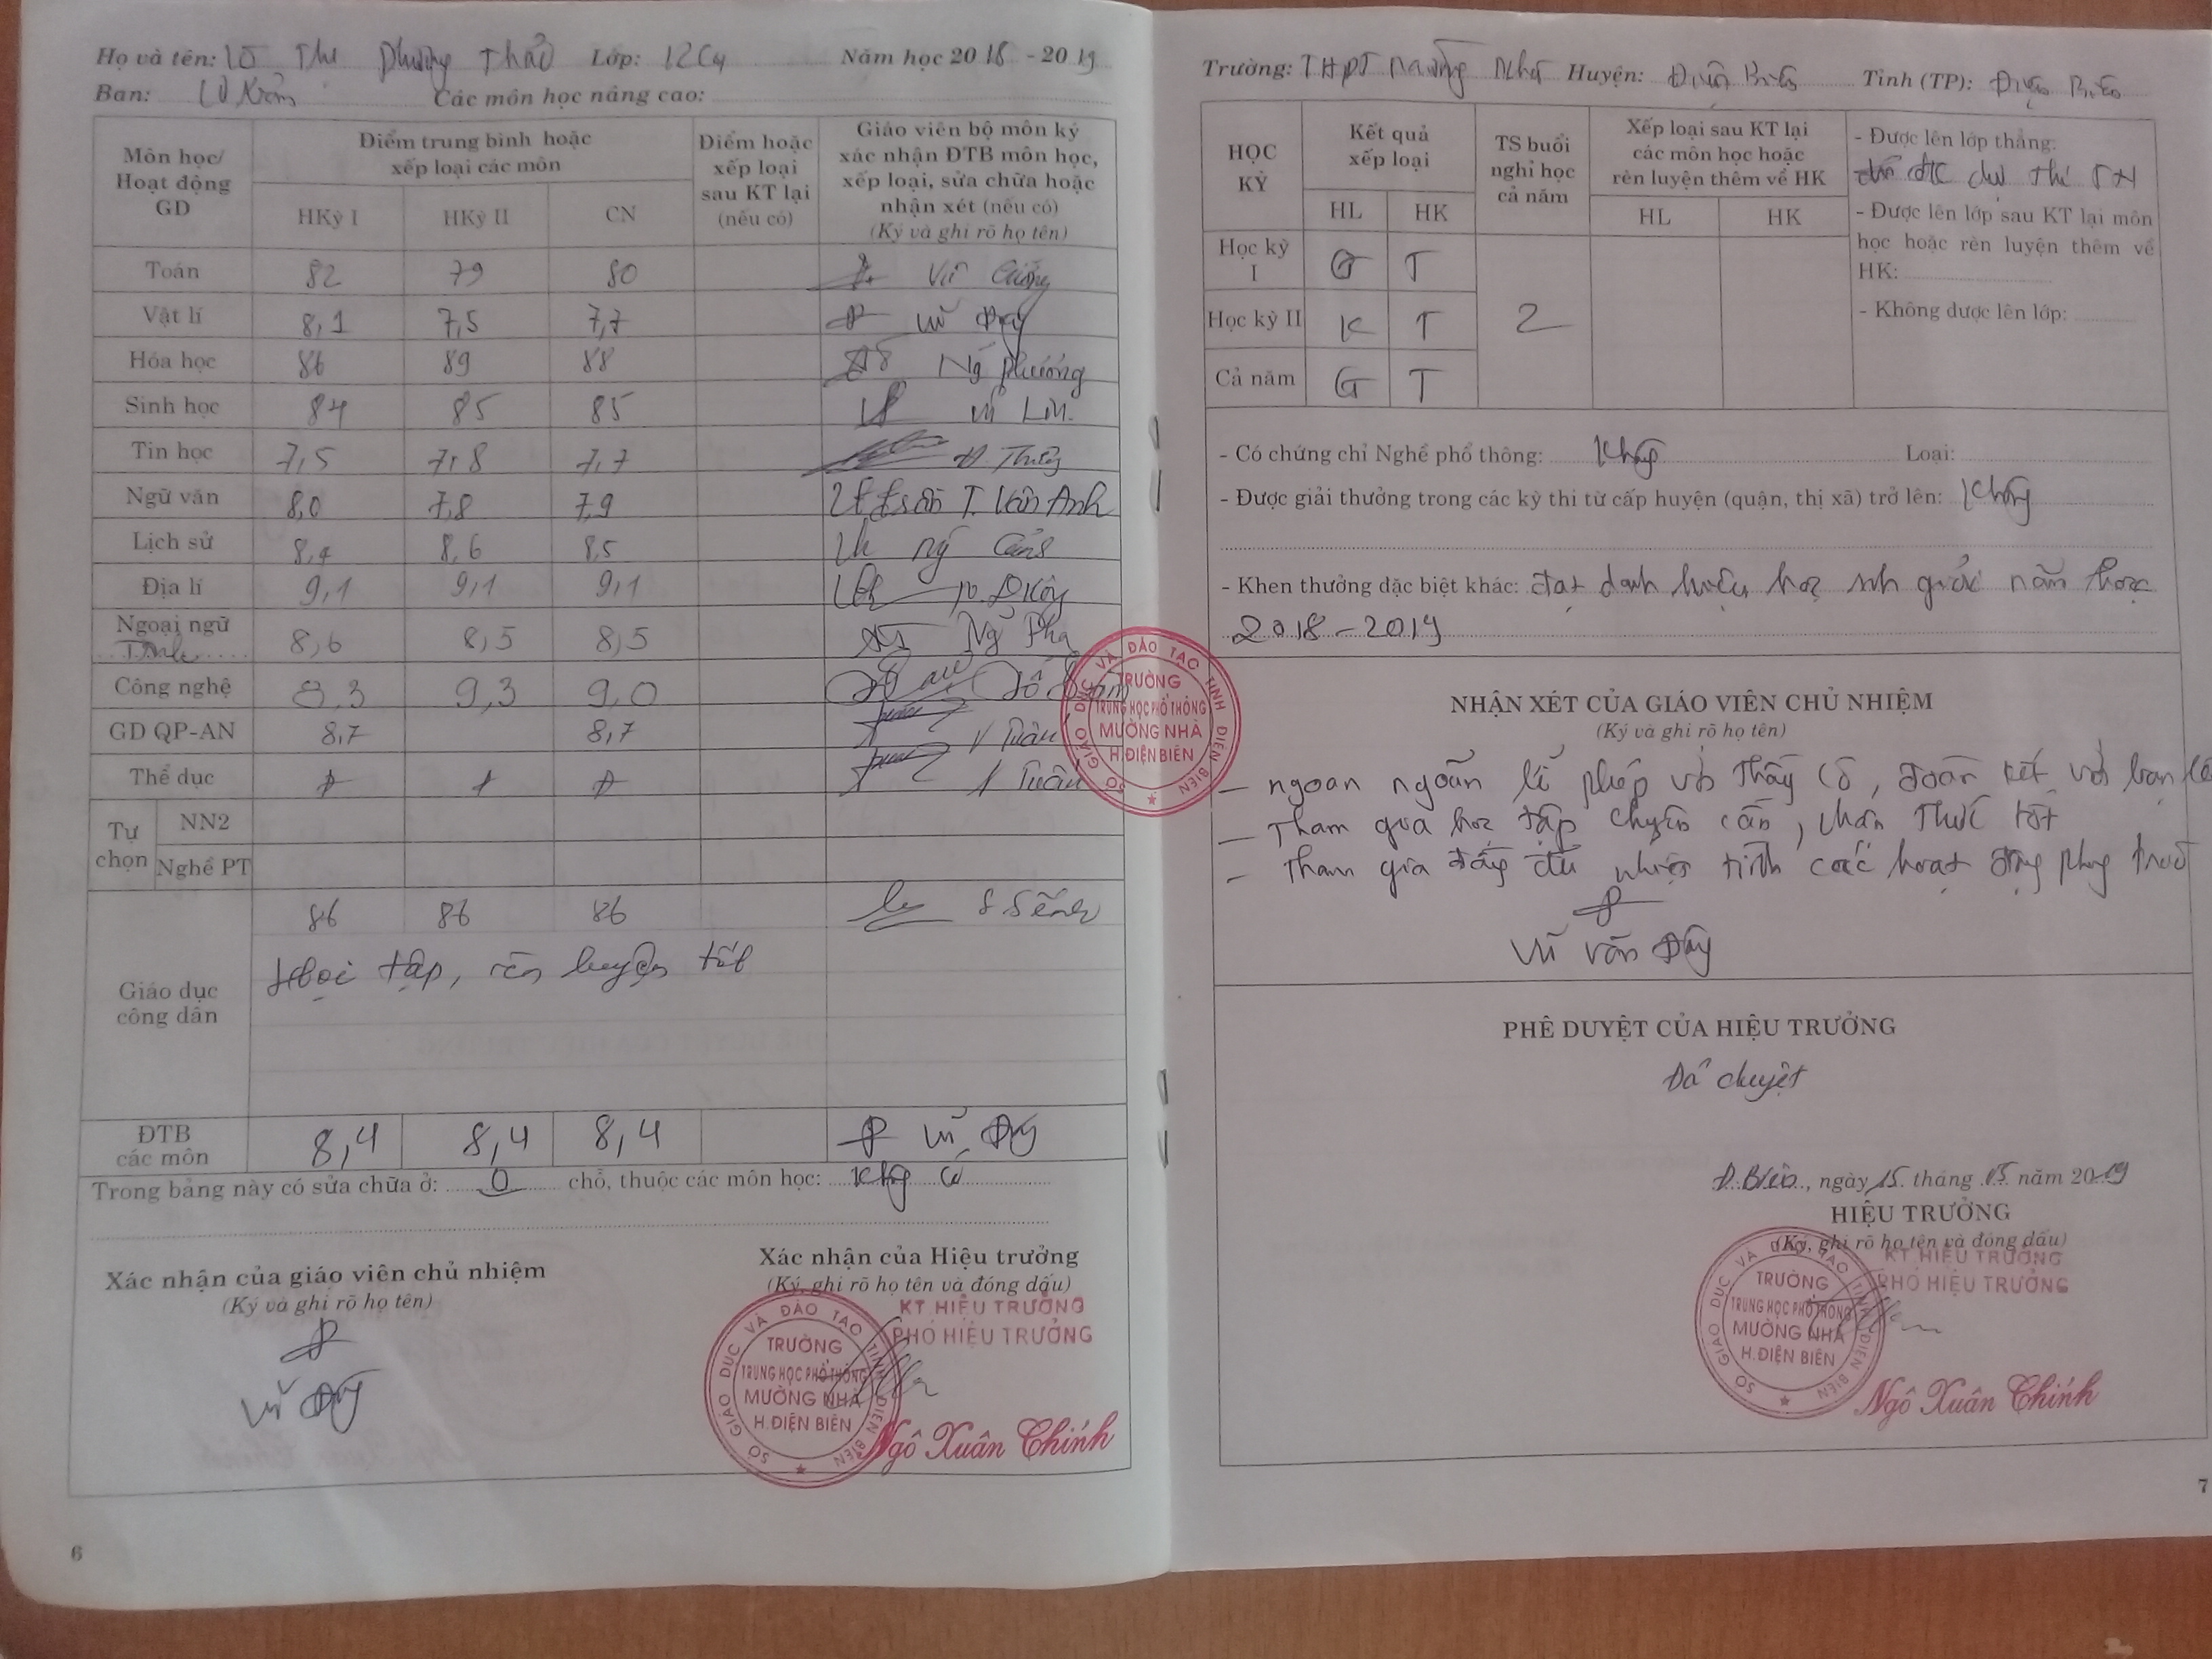 Họ và tên: Lò Thị Phương Thảo Lớp: 12C4 Năm học 2018 - 2019
Ban: Cơ bản Các môn học nâng cao:
Môn học/ Hoạt động GD
Điểm trung bình hoặc xếp loại các môn
HKỳ I HKỳ II CN
Điểm hoặc xếp loại sau KT lại (nếu có)
Giáo viên bộ môn ký xác nhận ĐTB môn học, xếp loại, sửa chữa hoặc nhận xét (nếu có)
(Ký và ghi rõ họ tên)
Toán 82 79 80 Vũ Cường
Vật lí 8,1 7,5 7,7 Vũ Đây
Hóa học 86 89 88 Ng Phương
Sinh học 84 85 85
Tin học 7,5 7,8 7,7
Ngữ văn 8,0 7,8 7,9 T. Vân Anh
Lịch sử 8,4 8,6 8,5
Địa lí 9,1 9,1 9,1
Ngoại ngữ 8,6 8,5 8,5
T.Anh
Công nghệ 8,3 9,3 9,0
GD QP-AN 8,7 8,7 Tuân
Thể dục Đ Đ Đ Tuân
Tự chọn
NN2
Nghề PT
Giáo dục công dân
86 86 86
Học tập, rèn luyện tốt
ĐTB các môn 8,4 8,4 8,4 Vũ Đây
Trong bảng này có sửa chữa ở: 0 chỗ, thuộc các môn học: Không có
Xác nhận của giáo viên chủ nhiệm
(Ký và ghi rõ họ tên)
Vũ Đây
Xác nhận của Hiệu trưởng
(Ký, ghi rõ họ tên và đóng dấu)
KT HIỆU TRƯỞNG
PHÓ HIỆU TRƯỞNG
SỞ GIÁO DỤC VÀ ĐÀO TẠO TỈNH ĐIỆN BIÊN
TRƯỜNG
TRUNG HỌC PHỔ THÔNG
MƯỜNG NHÀ
H.ĐIỆN BIÊN
Ngô Xuân Chính
6
SỞ GIÁO DỤC VÀ ĐÀO TẠO TỈNH ĐIỆN BIÊN
TRƯỜNG
TRUNG HỌC PHỔ THÔNG
MƯỜNG NHÀ
H.ĐIỆN BIÊN
Trường: THPT Mường Nhà Huyện: Điện Biên Tỉnh (TP): Điện Biên
HỌC KỲ
Kết quả xếp loại
HL HK
TS buổi nghỉ học cả năm
Xếp loại sau KT lại các môn học hoặc rèn luyện thêm về HK
HL HK
Học kỳ I G T
Học kỳ II K T
Cả năm G T
2
- Được lên lớp thẳng:
dự thi TN
- Được lên lớp sau KT lại môn
học hoặc rèn luyện thêm về
HK:
- Không được lên lớp:
- Có chứng chỉ Nghề phổ thông: Không Loại:
- Được giải thưởng trong các kỳ thi từ cấp huyện (quận, thị xã) trở lên: Không
- Khen thưởng đặc biệt khác: đạt danh hiệu học sinh giỏi năm học
2018 - 2019
NHẬN XÉT CỦA GIÁO VIÊN CHỦ NHIỆM
(Ký và ghi rõ họ tên)
- ngoan ngoãn lễ phép với thầy cô, đoàn kết với bạn bè
- Tham gia học tập chuyên cần, nhận thức tốt
- Tham gia đầy đủ nhiệt tình các hoạt động phong trào
Vũ Văn Đây
PHÊ DUYỆT CỦA HIỆU TRƯỞNG
Đã duyệt
Đ.Biên, ngày 15 tháng 05 năm 2019
HIỆU TRƯỞNG
(Ký, ghi rõ họ tên và đóng dấu)
KT HIỆU TRƯỞNG
PHÓ HIỆU TRƯỞNG
SỞ GIÁO DỤC VÀ ĐÀO TẠO TỈNH ĐIỆN BIÊN
TRƯỜNG
TRUNG HỌC PHỔ THÔNG
MƯỜNG NHÀ
H.ĐIỆN BIÊN
Ngô Xuân Chính
7